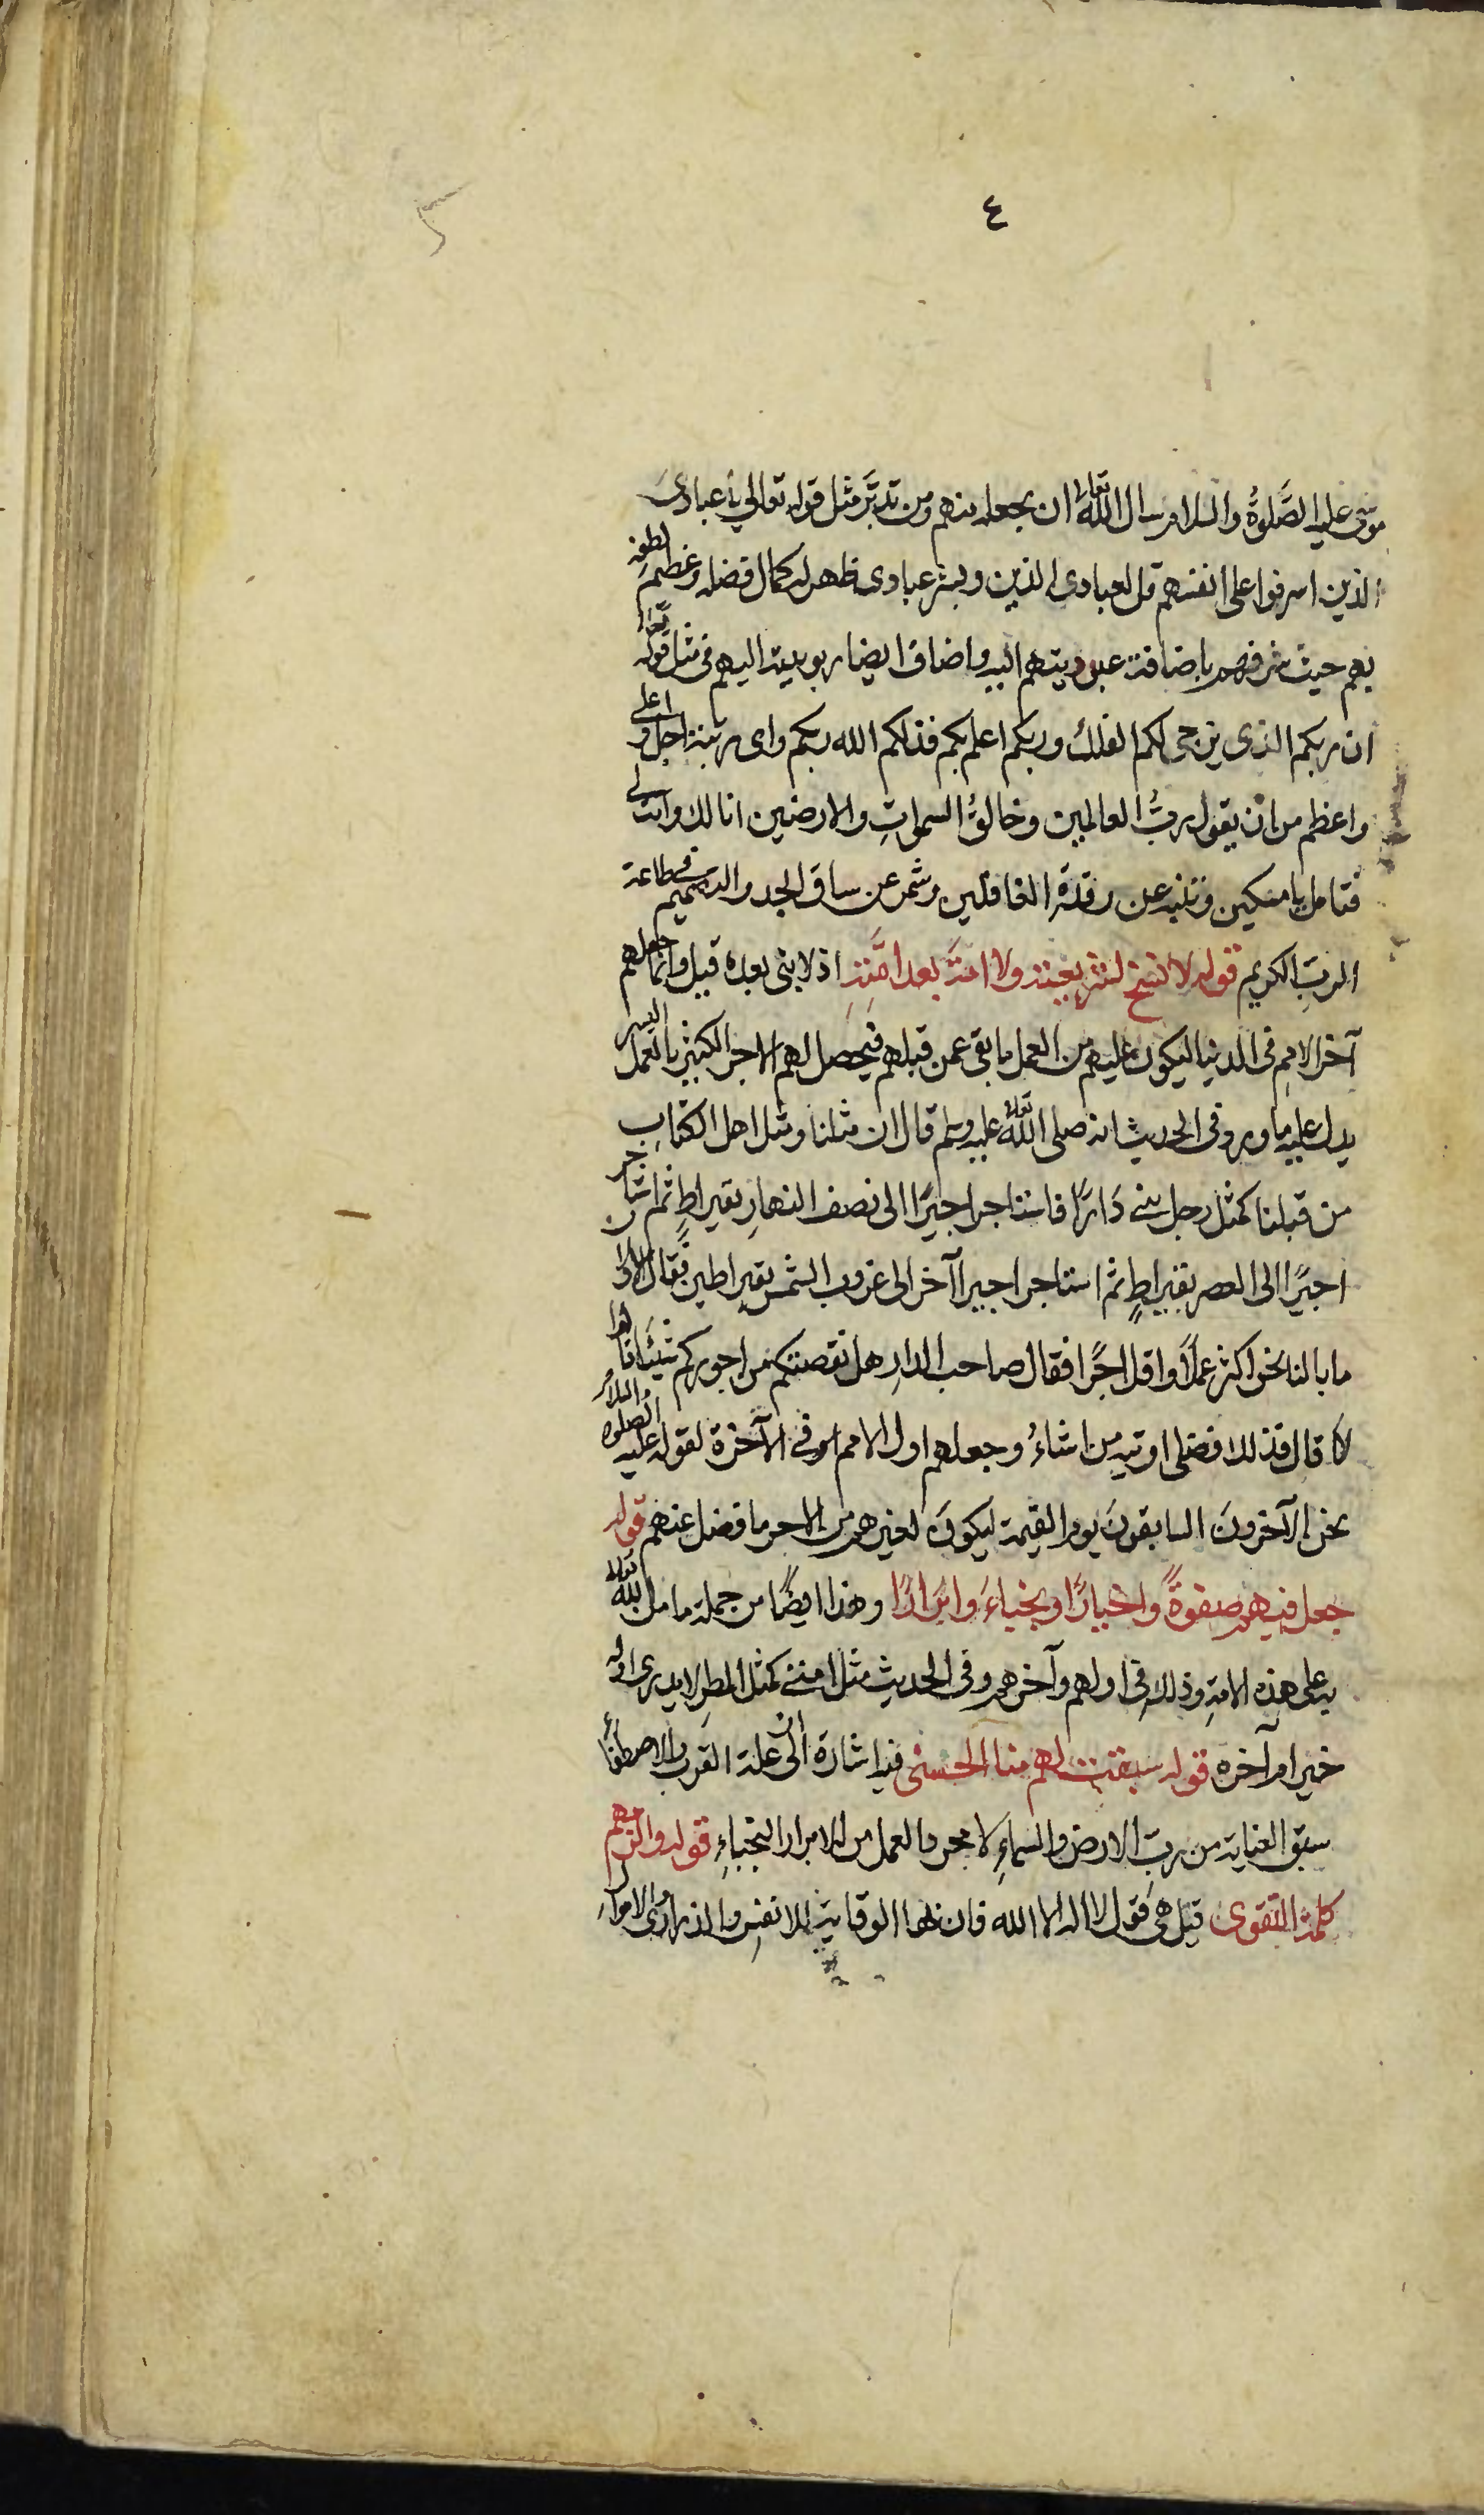 ٤
موسى عليه الصَّلوةُ والسلام سال اللّه تعالى ان يجعله منهم ومن تدبَّر مثل قوله تعالى يا عبادىَ
الذين اسرفوا على انفسهم قل لعبادى الذين وبشر عبادى ظهر له كمال فضله وعظم لطفه
بهم حيث شرفهم باضافة عبوديتهم اليه واضاف ايضا ربوبيته اليهم فى مثل قوله تعالى
ان ربكم الذى يزجى لكم الفلك وربكم اعلم بكم فذلكم الله ربكم واى مرتبة اجل واعلى
واعظم من ان يقول ربُّ العالمين وخالقُ السمواتِ والارضين انا لك وانت لى
فتامل يا مسكين وتنبه عن رقدة الغافلين وشمر عن ساق الجد والتصميم فى طاعة
الربِّ الكريم قوله لا نسخ لشريعته ولا امَّة بعد امَّتِهِ اذ لا نبى بعده قيل وانما جعلهم
آخر الامم فى الدنيا ليكون عليهم من العمل ما بقى عمن قبلهم فيحصل لهم الاجر الكثير بالعمل اليسير
يدل عليه ما ورد فى الحديث انه صلى اللّه تعالى عليه وسلم قال ان مثلنا ومثل اهل الكتابِ
من قبلنا كمثل رجل بنى دَارًا فاستاجر اجيرًا الى نصف النهارِ بقيراطٍ ثم استاجر
اجيرًا الى العصر بقيراطٍ ثم استاجر اجيرا آخر الى غروب الشمس بقيراطين فقال الاولان
ما بالنا نحن اكثر عملًا واقل اجرًا فقال صاحب الدارِ هل نقصتكم من اجوركم شيئًا قالوا
لا قال فذلك فضلى اوتيه من اشاءُ وجعلهم اول الامم فى الآخرة لقوله عليه الصلوة والسلام
نحن الآخرون السابقونَ يوم القيمة ليكونَ لغيرهم من الاجر ما فضل عنهم قوله
جعل فيهم صفوةً واخيارًا ونجباءَ وابرارًا وهذا ايضًا من جملة ما من اللّه تعالى
به على هذه الامة وذلك فى اولهم وآخرهم وفى الحديث مثل امتى كمثل المطرِ لا يدرى اوله
خير ام آخره قوله سبقت لهم منا الحسنى فيه اشارة الى ان علة القرب والاصطفاءِ
سبق العناية من ربِّ الارض والسماءِ لا مجرد العمل من الابرار النجباءِ قوله والزمهم
كلمة التقوى قيل هى قول لا اله الا الله فان بها الوقاية للانفسِ والذرارى والاموالِ